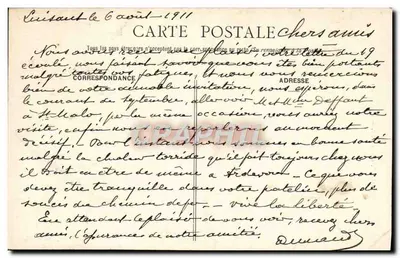 Luisant le 6 août 1911
CARTE POSTALE
Chers amis
Nous avons reçu avec plaisir, votre lettre du 29
CORRESPONDANCE
ADRESSE
écoulé, nous faisant savoir que vous êtes bien portants
malgré toutes vos fatigues, et nous vous remercions
bien de votre aimable invitation, nous espérons, dans
le courant de Septembre, aller voir M et Mme
à St Malo, par la même occasion, vous aurez notre
visite, enfin nous au moment
décisif - Pour l'instant nous sommes en bonne santé
malgré la chaleur torride qu'il fait toujours chez nous
il doit en être de même à - Ce que vous
devez être tranquille dans votre patelin, plus de
soucis du chemin de fer - vive la liberté -
En attendant le plaisir de vous voir, recevez chers
amis, l'assurance de notre amitié.